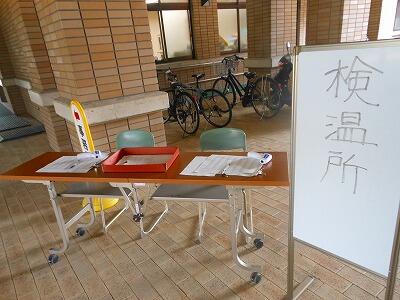 検温所